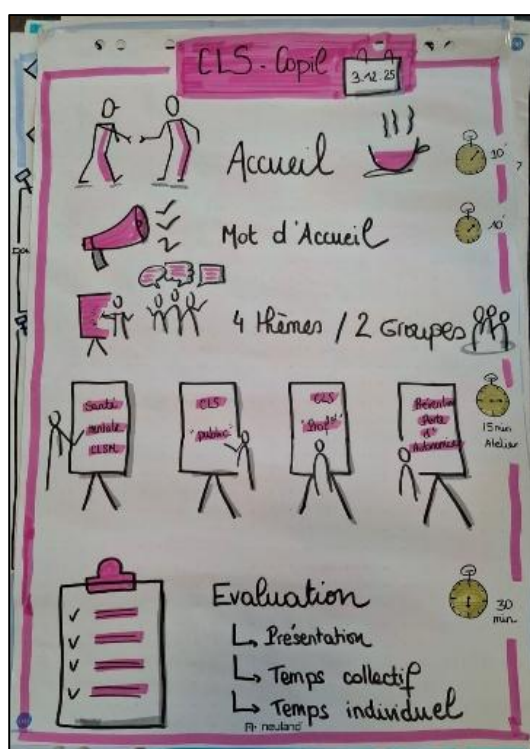 CLS - Copil
3.12.25
Accueil
10'
Mot d'Accueil
10'
4 thèmes / 2 Groupes
Santé
mentale
CLSM
CLS
"public"
CLS
"Profel"
Prévention
Perte
d'
Autonomie
15 min
Atelier
Evaluation
30
min
↳ Présentation
↳ Temps collectif
↳ Temps individuel
neuland